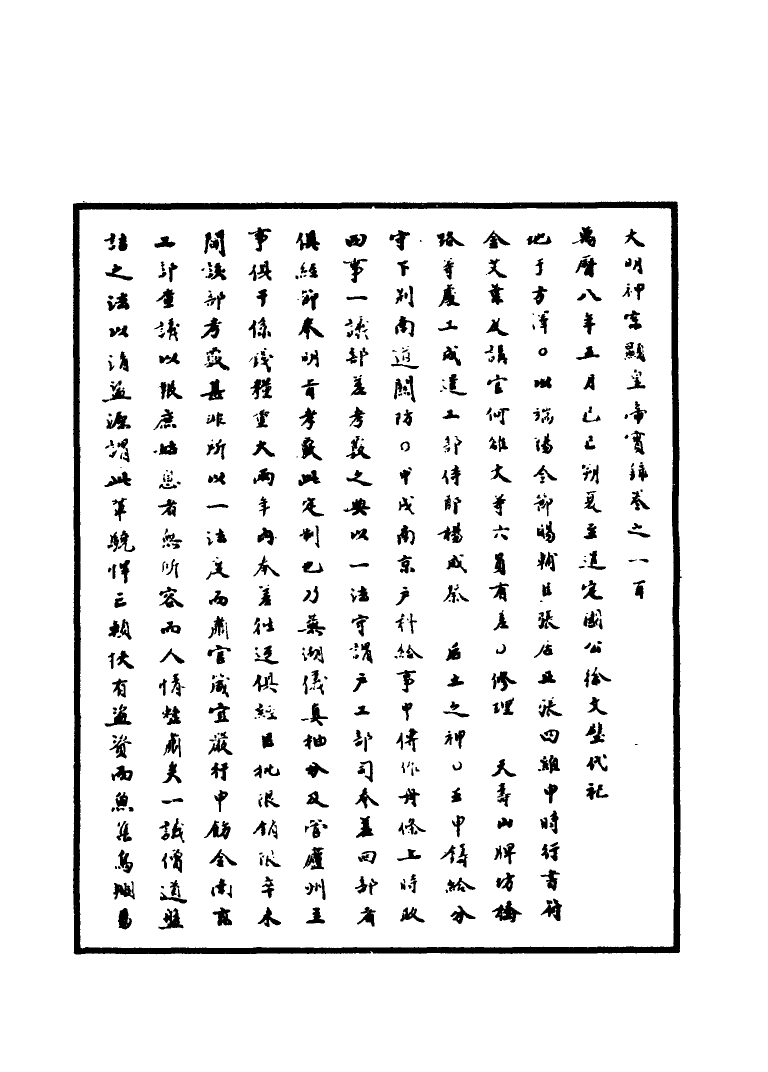 大明神宗顯皇帝實錄卷之一百
萬曆八年五月己巳朔夏至遣定國公徐文壁代祀
地于方澤○以端陽令節賜輔臣張居正張四維申時行書符
金艾葉及講官何雒文等六員有差○修理 天壽山牌坊橋
路等處工成遣工部侍郎楊成祭 后土之神○壬申鑄給分
守下荊南道關防○甲戌南京戶科給事中傅作舟條上時政
四事一議部差考覈之典以一法守謂戶工部司奉差回部者
俱經節奉明旨考覈此定制也乃蕪湖儀真抽分及管廬州至
事俱干係錢糧重大兩年內奉差往返俱經臣批限銷限辛未
聞該部考覈甚非所以一法度而肅官箴宜嚴行申飭令南京
工部查議以報庶姑息者無所容而人情警肅矣一議僧道盤
詰之法以清盜源謂此輩驍悍亡賴伏有盜資而魚集鳥 易